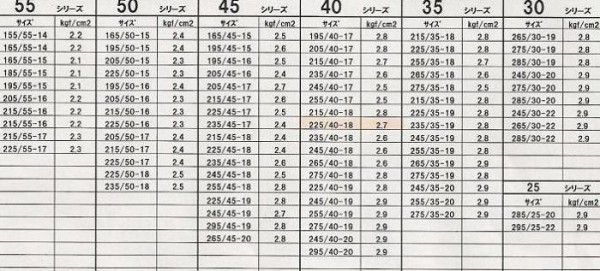 55 シリーズ
サイズ kgf/cm2
155/55-14 2.2
165/55-15 2.1
185/55-15 2.2
195/55-15 2.1
205/55-16 2.2
215/55-16 2.2
215/55-17 2.3
225/55-17 2.3
50 シリーズ
サイズ kgf/cm2
165/50-15 2.4
165/50-16 2.4
205/50-15 2.3
195/50-16 2.3
225/50-15 2.3
205/50-16 2.3
225/50-16 2.3
205/50-17 2.4
215/50-17 2.4
225/50-17 2.4
225/50-18 2.5
235/50-18 2.5
45 シリーズ
サイズ kgf/cm2
165/45-15 2.5
195/45-15 2.4
195/45-16 2.5
205/45-16 2.4
245/45-16 2.3
215/45-17 2.6
225/45-17 2.5
235/45-17 2.4
215/45-18 2.4
235/45-18 2.4
245/45-18 2.5
255/45-18 2.8
225/45-19 2.8
245/45-19 2.7
295/45-19 2.8
265/45-20 2.8
40 シリーズ
サイズ kgf/cm2
195/40-17 2.8
205/40-17 2.8
215/40-17 2.7
235/40-17 2.6
245/40-17 2.5
255/40-17 2.5
215/40-18 2.8
225/40-18 2.7
235/40-18 2.6
245/40-18 2.6
255/40-18 2.6
265/40-18 2.6
225/40-19 2.9
255/40-19 2.9
275/40-19 2.9
245/40-20 2.9
295/40-20 2.9
35 シリーズ
サイズ kgf/cm2
215/35-18 2.8
225/35-18 2.8
255/35-18 2.6
265/35-18 2.6
275/35-18 2.5
215/35-19 2.8
225/35-19 2.8
235/35-19 2.8
245/35-19 2.8
255/35-19 2.8
265/35-19 2.8
275/35-19 2.9
245/35-20 2.9
255/35-20 2.9
275/35-20 2.9
30 シリーズ
サイズ kgf/cm2
265/30-19 2.8
275/30-19 2.8
285/30-19 2.8
245/30-20 2.8
285/30-20 2.8
245/30-22 2.9
255/30-22 2.9
265/30-22 2.9
285/30-22 2.9
25 シリーズ
サイズ kgf/cm2
285/25-20 2.9
295/25-22 2.9